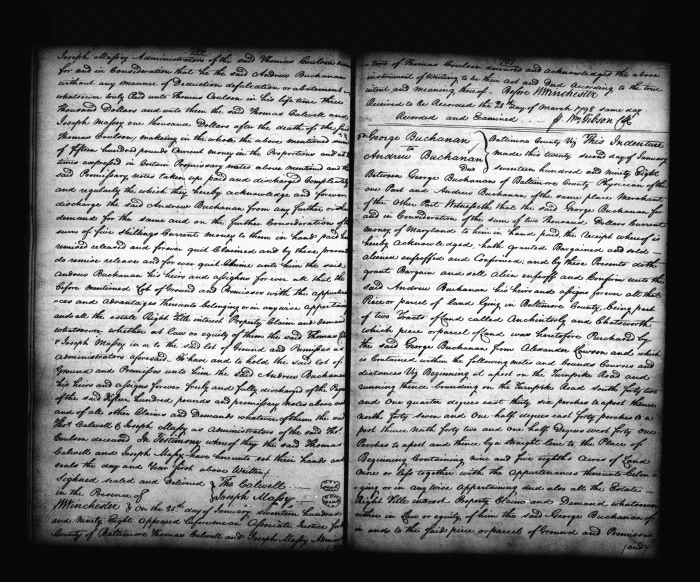 Joseph Massy Administrators of the said Thomas Coulson
for and in Consideration that he the said Andrew Buchanan
without any manner of Deduction defalcation or abatement
whatsoever truly Paid unto Thomas Coulson in his life time three
thousand Dollars and unto them the said Thomas Calwell and
Joseph Massy one thousand Dollars after the death of the said
Thomas Coulson, making in the whole the above mentioned sum
of fifteen hundred pounds Current money in the Proportions and at
times expressed in Certain Promissory notes above mentioned and the
said Promissory notes taken up paid and discharged Completely
and regularly the which they hereby acknowledge and forever
discharge the said Andrew Buchanan from any further
demand for the same and on the further Consideration of the
sum of five Shillings Current money to them in hand paid
remised released and forever quit Claimed and by these presents
do remise release and for ever quit Claim unto him the said
Andrew Buchanan his heirs and assigns for ever all that the
before mentioned Lot of Ground and Premisses with the appurtenan
=ces and advantages thereunto belonging or in any wise appertain
and all the estate Right title interest Property Claim and demand
whatsoever, whether at Law or equity of them the said Thomas
& Joseph Massy in or to the said lot of Ground and Premises as
Administrators aforesaid. To have and to hold the said lot of
Ground and Premises unto him the said Andrew Buchanan
his heirs and assigns forever freely and fully discharged of the
of the said fifteen hundred pounds and promissory notes above
and of all other Claims and Demands whatsoever of them the said
Thos. Calwell & Joseph Massy as Administrators of the said Thos.
Coulson deceased In Testimony whereof they the said Thomas
Calwell and Joseph Massy have hereunto set their hands and
seals the day and Year first above Written
Signed sealed and Delivered } Tho Calwell
in the Presence of } Joseph Massy
W Winchester & On the 25th day of January seventeen hundred
and Ninety Eight Appeared before me an Associate Justice for
County of Baltimore Thomas Calwell and Joseph Massy Admin
=tors of Thomas Coulson deceased and acknowledged the above
instrument of Writing to be their Act and Deed According to the true
intent and meaning thereof. Before W Winchester
Received to be Recorded the 28 day of March 1798 same day
Recorded and Examined Wm Gibson Clk
George Buchanan } Baltimore County This Indenture
to } made this twenty second day of January
Andrew Buchanan } seventeen hundred and ninety Eight
Between George Buchanan of Baltimore County Physician of the
one Part and Andrew Buchanan of the same place Merchant
of the Other Part Witnesseth that the said George Buchanan for
and in Consideration of the sum of two Thousand Dollars Current
money of Maryland to him in hand paid, the Receipt whereof is
hereby Acknowledged, hath granted Bargained and sold
aliened enfeoffed and Confirmed, and by these Presents doth
grant Bargain and sell Alien enfeoff and Confirm unto the
said Andrew Buchanan his heirs and assigns forever all that
Piece or parcel of land lying in Baltimore County, being part
of two Tracts of Land called and Chatsworth
which piece or parcel of Land was heretofore Purchased by
the said George Buchanan from Alexander Lawson and which
is Contained within the following metes and bounds Courses and
distances Viz Beginning at a post on the Turnpike Road and
running thence bounding on the Turnpike Road South forty two
and One quarter degree east thirty six perches to a post thence
north forty seven and One half degree east forty perches to a
post thence North forty two and one half Degrees West forty One
Perches to a post and thence by a straight line to the Place of
Beginning Containing nine and five eighths Acres of Land
more or less together with the Appurtenances thereunto belon=
ging or in any wise Appertaining and also all the Estate
Right Title interest Property Claim and Demand whatsoever
either in Law or equity of him the said George Buchanan of
in and to the said piece or parcel of Ground and Premisses
and